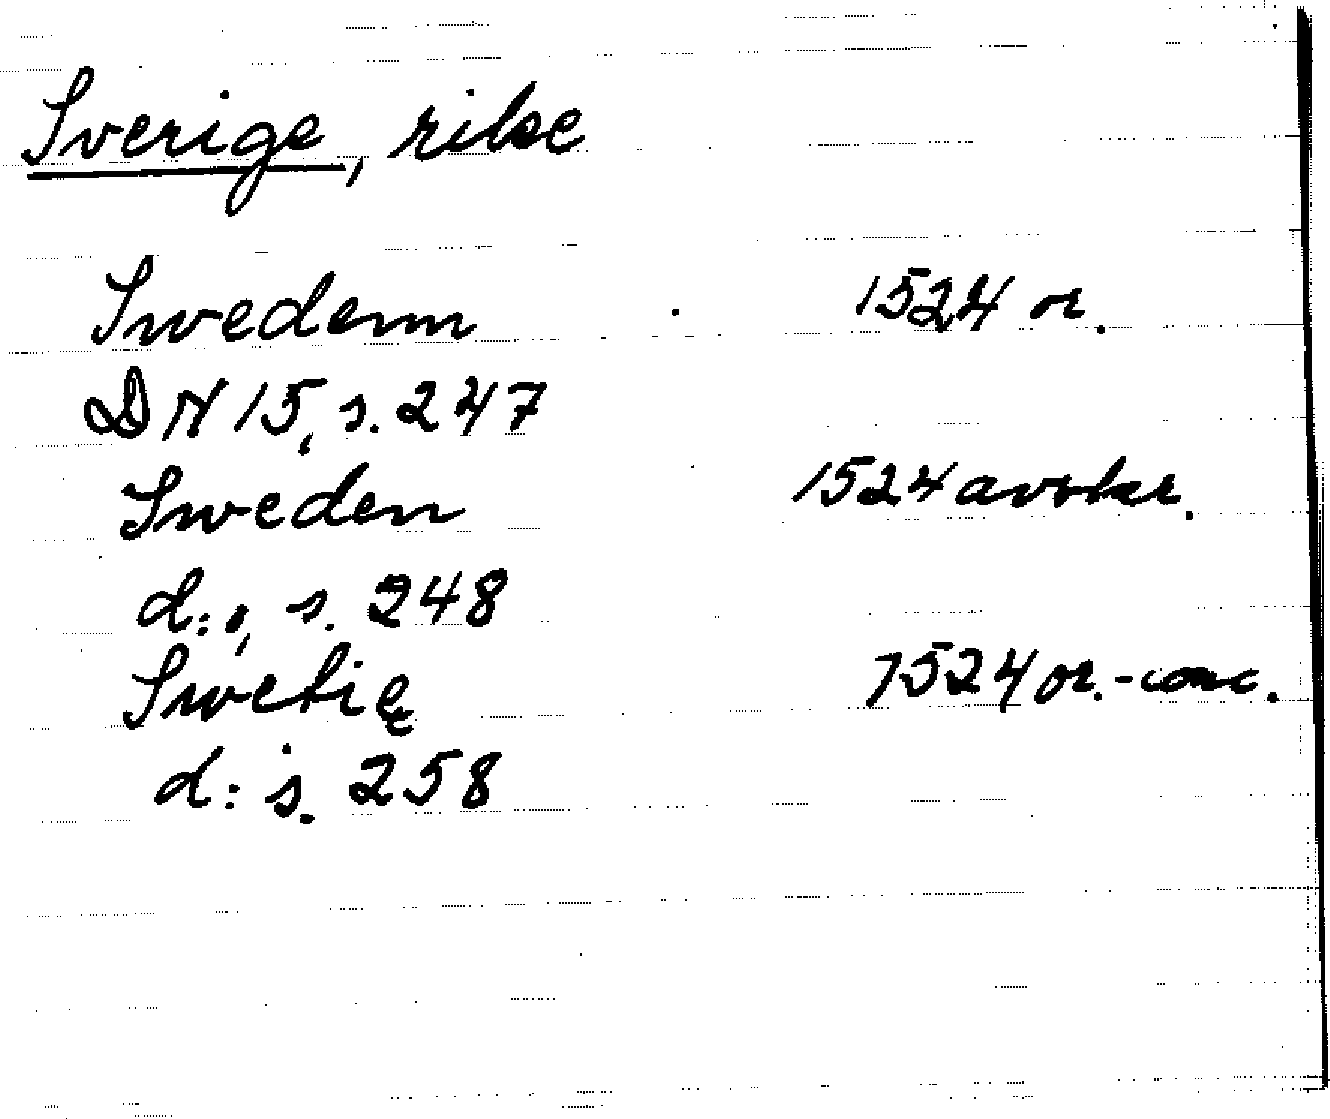 Sverige, rike
Swedenn 1524 or.
DN 15, s. 247
Sweden 1524 avskr.
d:o, s. 248
Swetię 1524 or.-conc.
d: s. 258